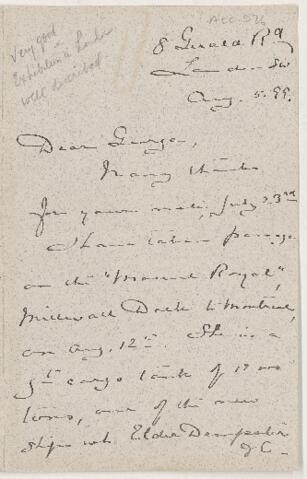 ACC-526
Very good
Exhibition in London
well described
8 Gerald Rd
London SW
Aug. 5. 99.
Dear George,
Many thanks
for yours note, July 23rd
I have taken passage
on the "Mount Royal",
Millwall Dock to Montreal,
on Aug. 12th. She is a
gt. cargo tank of
tons, one of the new
ships wh Elder Dempster
& C